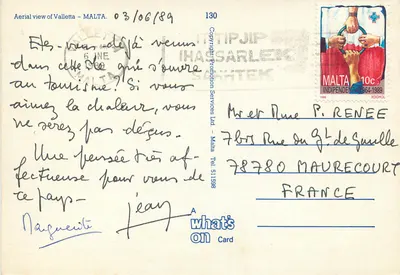 Aerial view of Valletta - MALTA.
03/06/89
130
Etes-vous déjà venus
dans cette île qui s'ouvre
au tourisme? Si vous
aimez la chaleur, vous
ne serez pas déçus.
Une pensée très af-
fectueuse pour vous de
ce pays-
Marguerite
Jean
Copyright: Promotion Services Ltd. - Malta Tel: 511598
A
what's
on Card
JNE
MALTA
IHASSARLEK
MALTA 10c
INDIPENDENZA 1964-1989
Mr et Mme P. RENEE
7bis Rue du Gl de Gaulle
78780 MAURECOURT
FRANCE